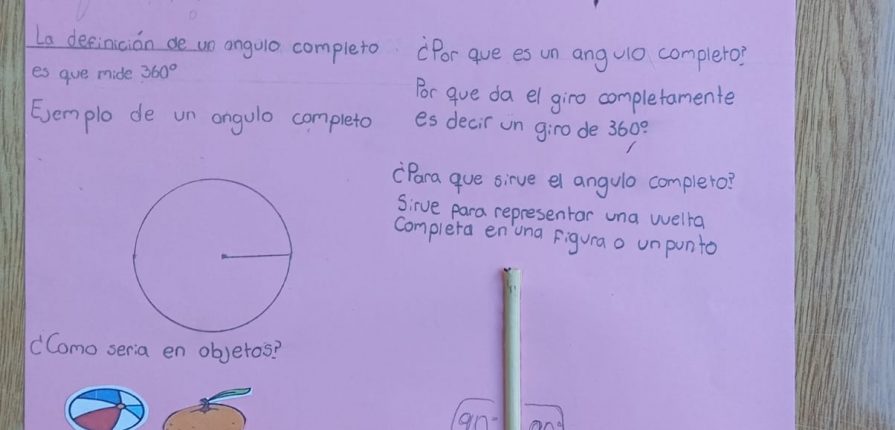 La definición de un angulo completo
es que mide 360°
Ejemplo de un angulo completo
¿Como seria en objetos?
¿Por que es un angulo completo?
Por que da el giro completamente
es decir un giro de 360°
¿Para que sirve el angulo completo?
Sirve para representar una vuelta
Completa en una figura o un punto